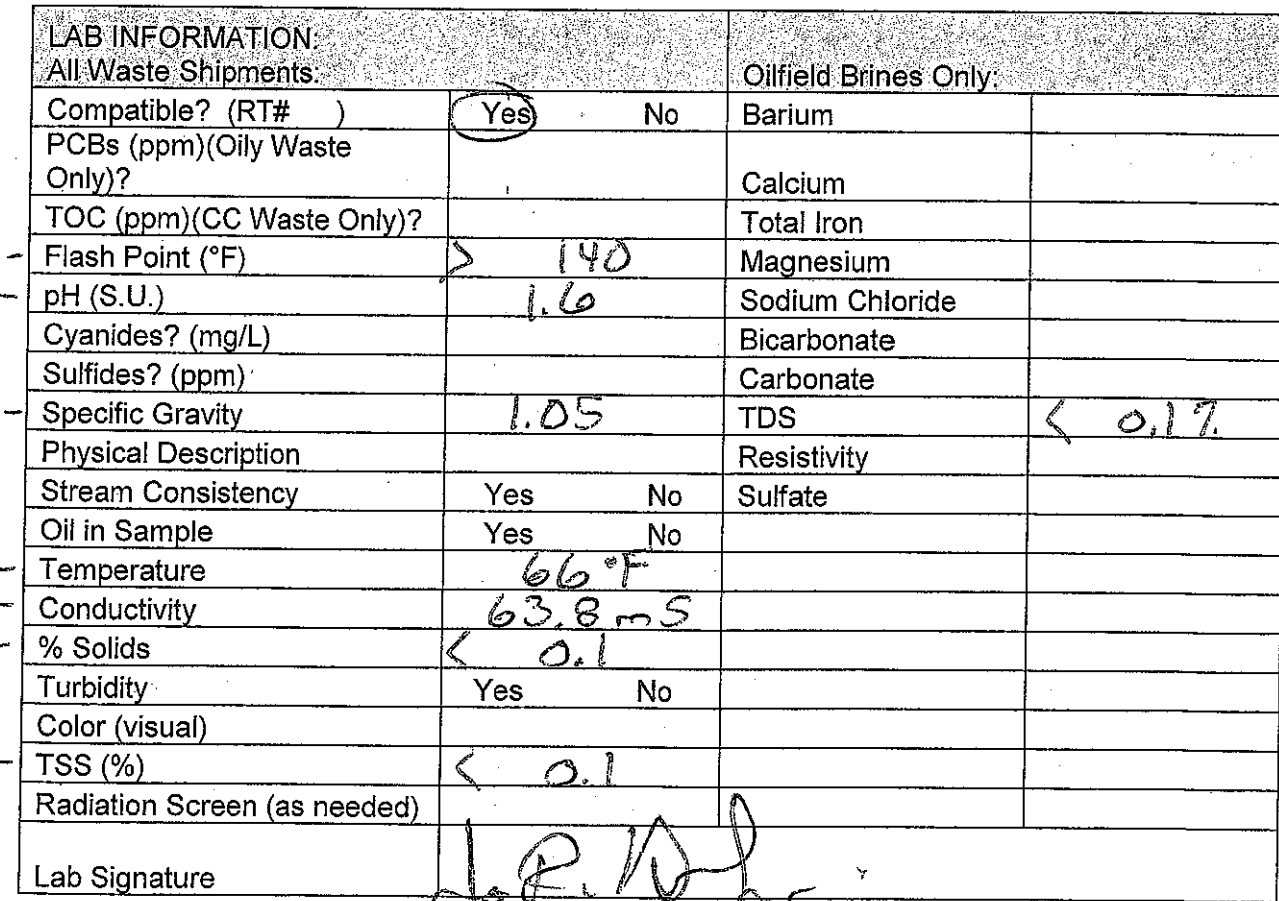 LAB INFORMATION:
All Waste Shipments: Oilfield Brines Only:
Compatible? (RT# ) Yes No Barium
PCBs (ppm)(Oily Waste
Only)? Calcium
TOC (ppm)(CC Waste Only)? Total Iron
Flash Point (°F) > 140 Magnesium
pH (S.U.) 1.6 Sodium Chloride
Cyanides? (mg/L) Bicarbonate
Sulfides? (ppm) Carbonate
Specific Gravity 1.05 TDS < 0.1%
Physical Description Resistivity
Stream Consistency Yes No Sulfate
Oil in Sample Yes No
Temperature 66 °F
Conductivity 63.8 mS
% Solids < 0.1
Turbidity Yes No
Color (visual)
TSS (%) < 0.1
Radiation Screen (as needed)
Lab Signature